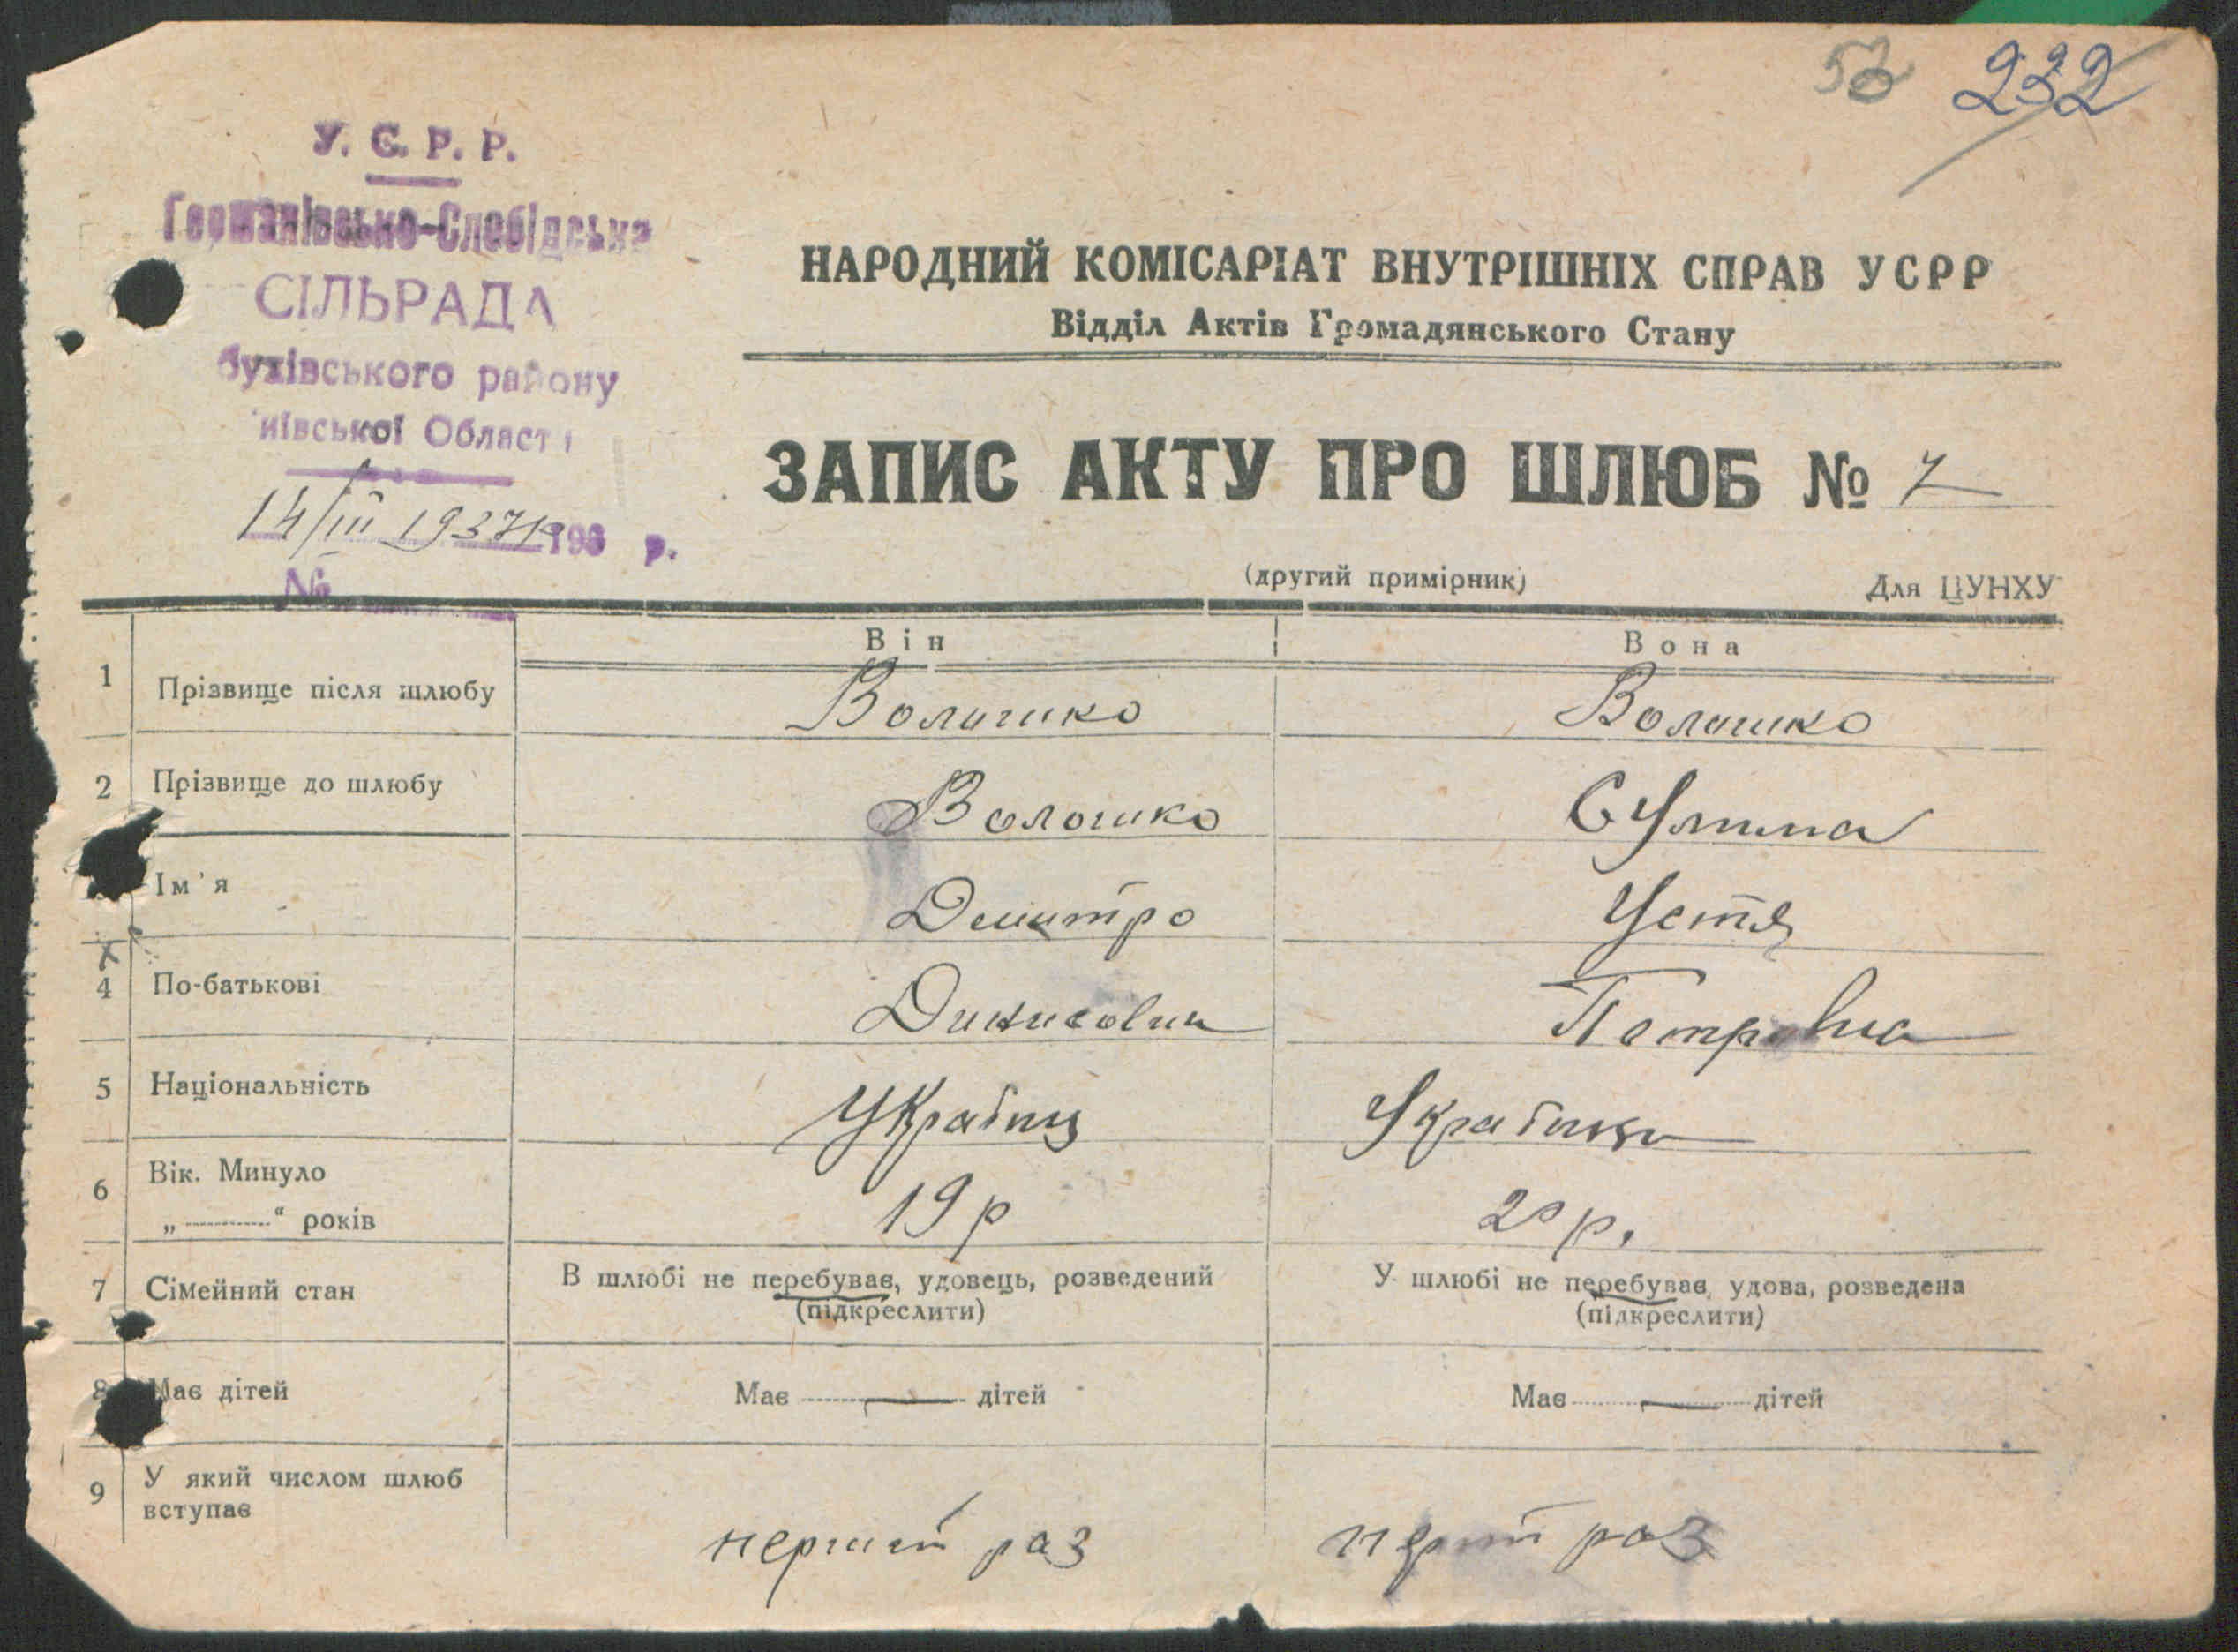 53 232
У. С. Р. Р.
Германівсько-Слобідська
СІЛЬРАДА
бухівського району
иївської Област і
14/III 1937 р 193 р.
№
НАРОДНИЙ КОМІСАРІАТ ВНУТРІШНІХ СПРАВ УСРР
Відділ Актів Громадянського Стану
ЗАПИС АКТУ ПРО ШЛЮБ № 7
(другий примірник) Для ЦУНХУ
Він Вона
1 Прізвище після шлюбу Волошко Волошко
2 Прізвище до шлюбу Волошко Сулима
Ім'я Демитро Устя
4 По-батькові Динисович Петровна
5 Національність Українц Українка
6 Вік. Минуло
„ “ років 19 р 20 р.
7 Сімейний стан В шлюбі не перебуває, удовець, розведений У шлюбі не перебуває, удова, розведена
(підкреслити) (підкреслити)
8 Має дітей Має — дітей Має — дітей
9 У який числом шлюб
вступає
перший раз перший раз